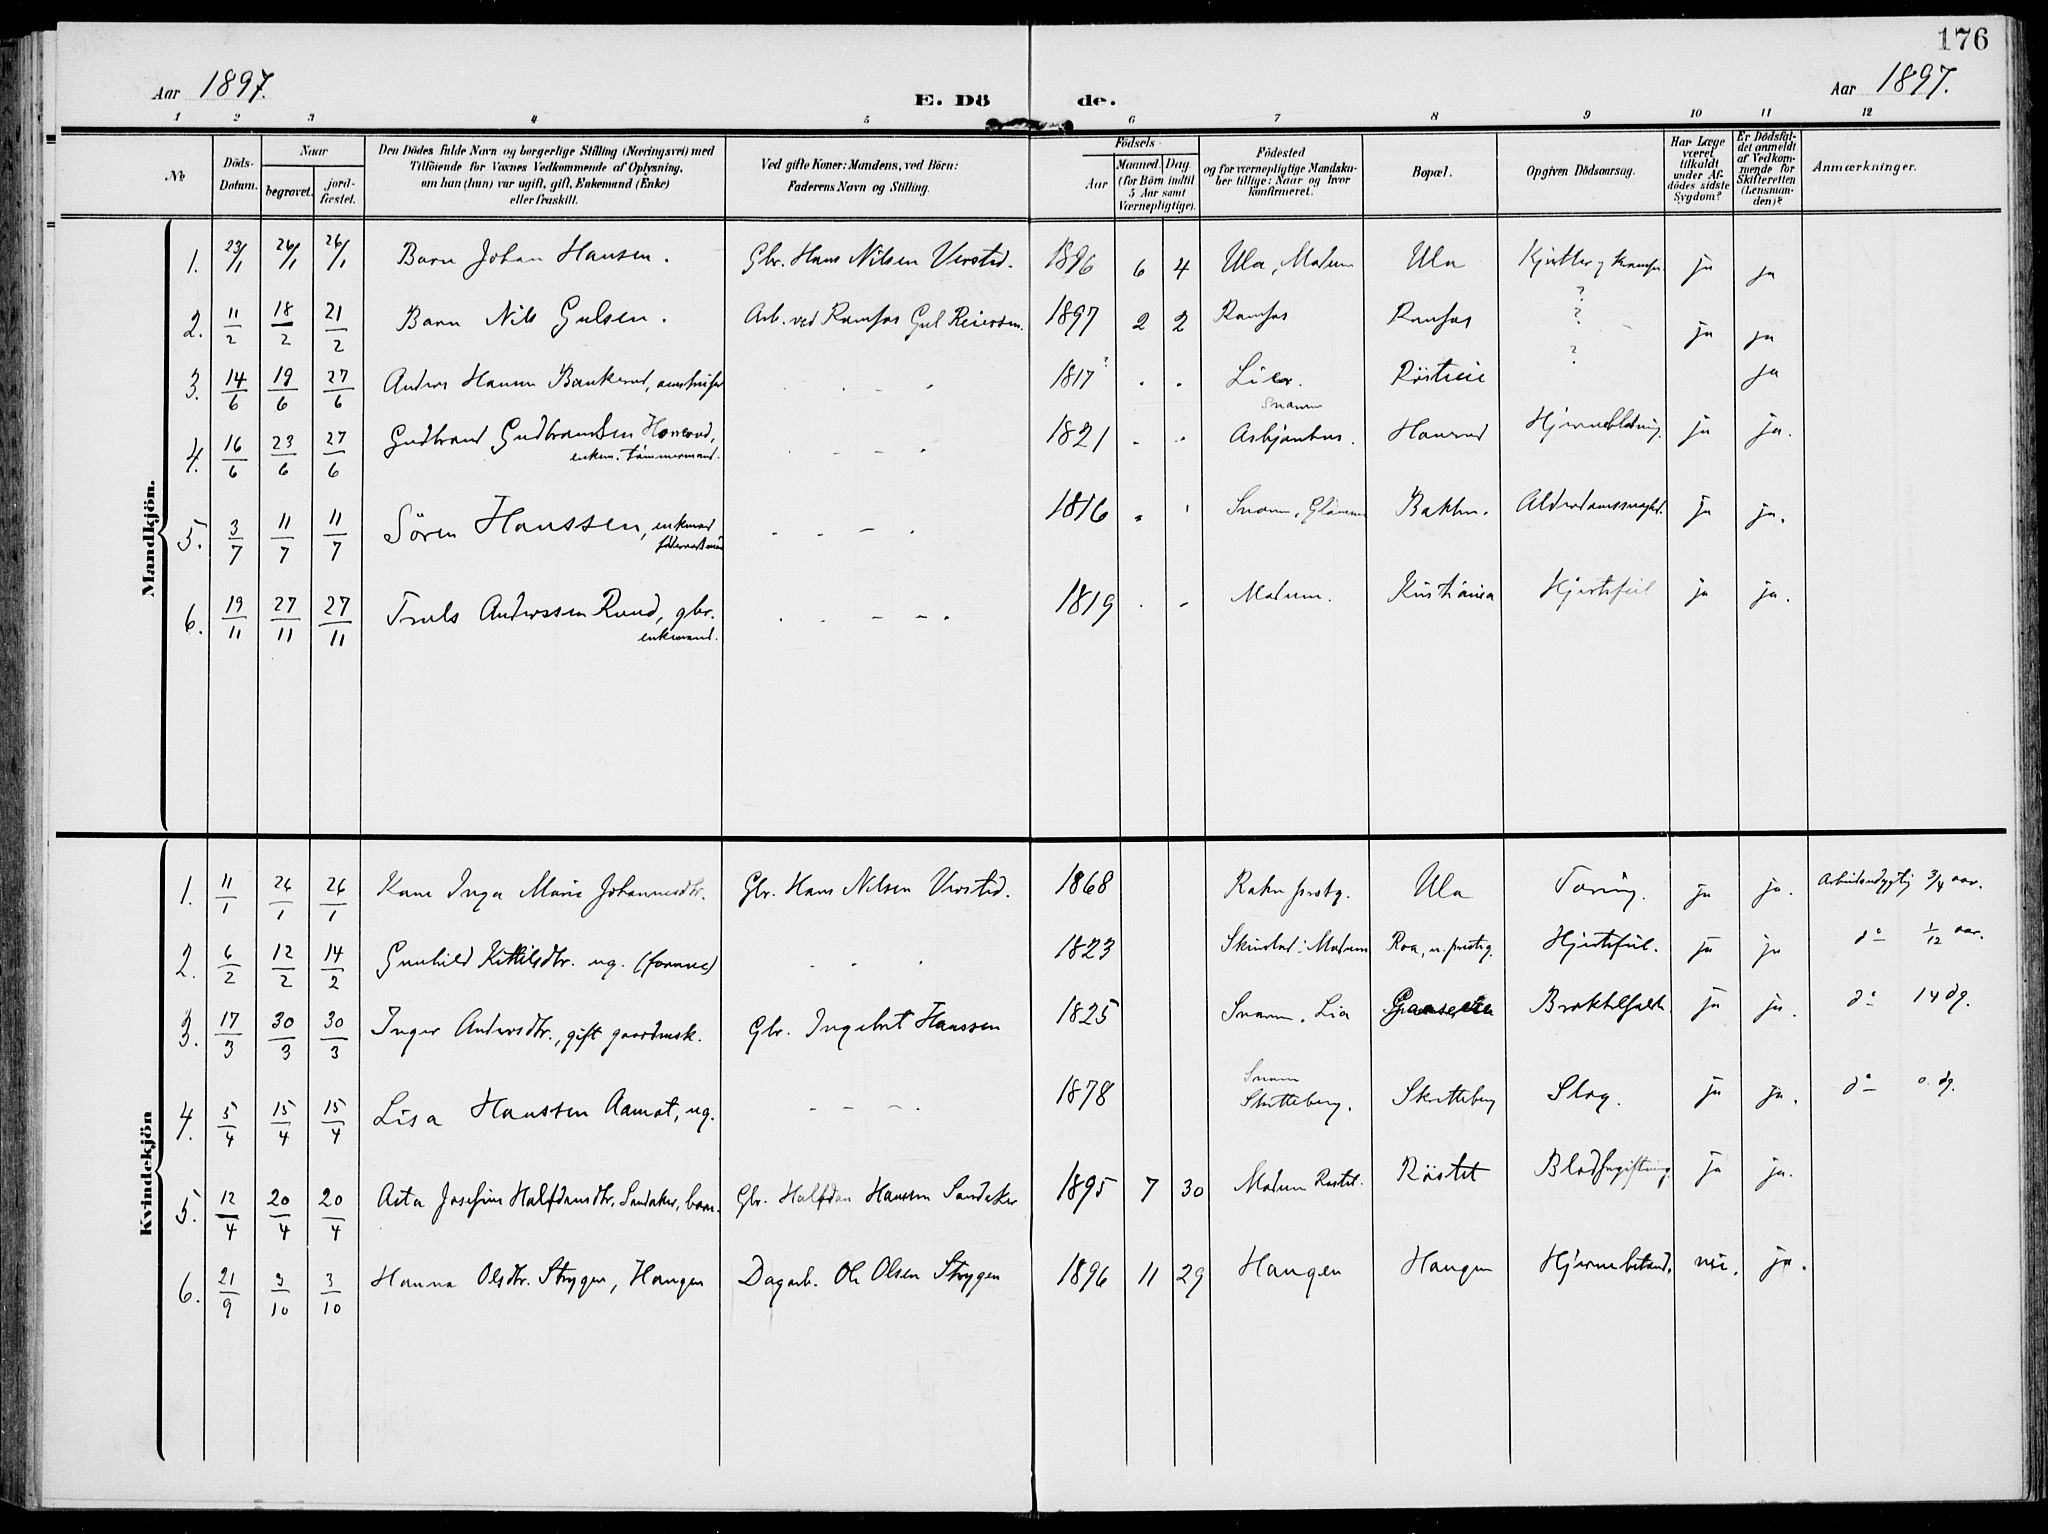 176
Aar 1897.
E. Dö de.
Aar 1897.
1 2 3 4 5 6 7 8 9 10 11 12
No
Döds-Datum.
Naar
begravet.
jord-fæstet.
Den Dödes fulde Navn og borgerlige Stilling (Næringsvei) med
Tilföiende for Voxnes Vedkommende af Oplysning,
om han (hun) var ugift, gift, Enkemand (Enke)
eller fraskilt.
Ved gifte Koner: Mandens, ved Börn:
Faderens Navn og Stilling.
Födsels-
Aar
Maaned. Dag.
(for Börn indtil
5 Aar samt
Værnepligtige).
Födested
og for værnepligtige Mandska-
ber tillige: Naar og hvor
konfirmeret.
Bopæl.
Opgiven Dödsaarsag.
Har Læge
været
tilkaldt
under Af-
dödes sidste
Sygdom?
Er Dödsfal-
det anmeldt
af Vedkom-
mende for
Skifteretten
(Lensman-
den)?
Anmærkninger.
Mandkjön.
1. 23/1 26/1 26/1 Barn Johan Hansen. Gbr. Hans Nilsen Verstad. 1896 6 4 Ula, Modum Ula Kjertler og krampe ja ja
2. 11/2 18/2 21/2 Barn Nils Gulsen. Arb. ved Ramfos Gul Reiersen. 1897 2 2 Ramfos Ramfos ? ? ja ja
3. 14/6 19/6 27/6 Anders Hansen 1817 ? Lier. Röstieie ? ja
4. 16/6 23/6 27/6 Gudbrand Gudbrandsen Horverud, enkem. tömmermand. 1821 Snarum Horverud Hjerneblödning. ja ja.
5. 3/7 11/7 11/7 Sören Hanssen, enkemand 1816 Snarum, Bakken. ja ja.
6. 19/11 27/11 27/11 Truls Anderssen Rud, gbr. enkemand. 1819 Modum. Kristiania Hjertefeil ja ja.
Kvindekjön
1. 11/1 26/1 26/1 Kone Inga Marie Johannesdtr. Gbr. Hans Nilsen Verstad. 1868 Ula Tæring. ja ja. Arbeidsudygtig 3/4 aar.
2. 6/2 12/2 14/2 Gunhild Kittilsdtr. ug. 1823 Modum Roa, Hjertefeil. ja ja do 1/12 aar.
3. 17/3 30/3 30/3 Inger Andersdtr., gift gaardmsk. Gbr. Ingebret Hanssen 1825 Snarum. Lia ja ja. do 14 dg.
4. 5/4 15/4 15/4 Lisa Hanssen Aamot, ug. 1878 Snarum Skutteberg. Skutteberg Slag. ja ja. do 0. dg.
5. 12/4 20/4 20/4 Asta Josefine Halfdansdtr. Sandaker, barn. Gbr. Halfdan Hansen Sandaker 1895 7 30 Modum Röstet. Röstet Blodforgiftning. ja ja.
6. 21/9 3/10 3/10 Hanna Olsdtr. Strygen, Haugen Dagarb. Ole Olsen Strygen 1896 11 29 Haugen Haugen Hjernebetænd. nei. ja.